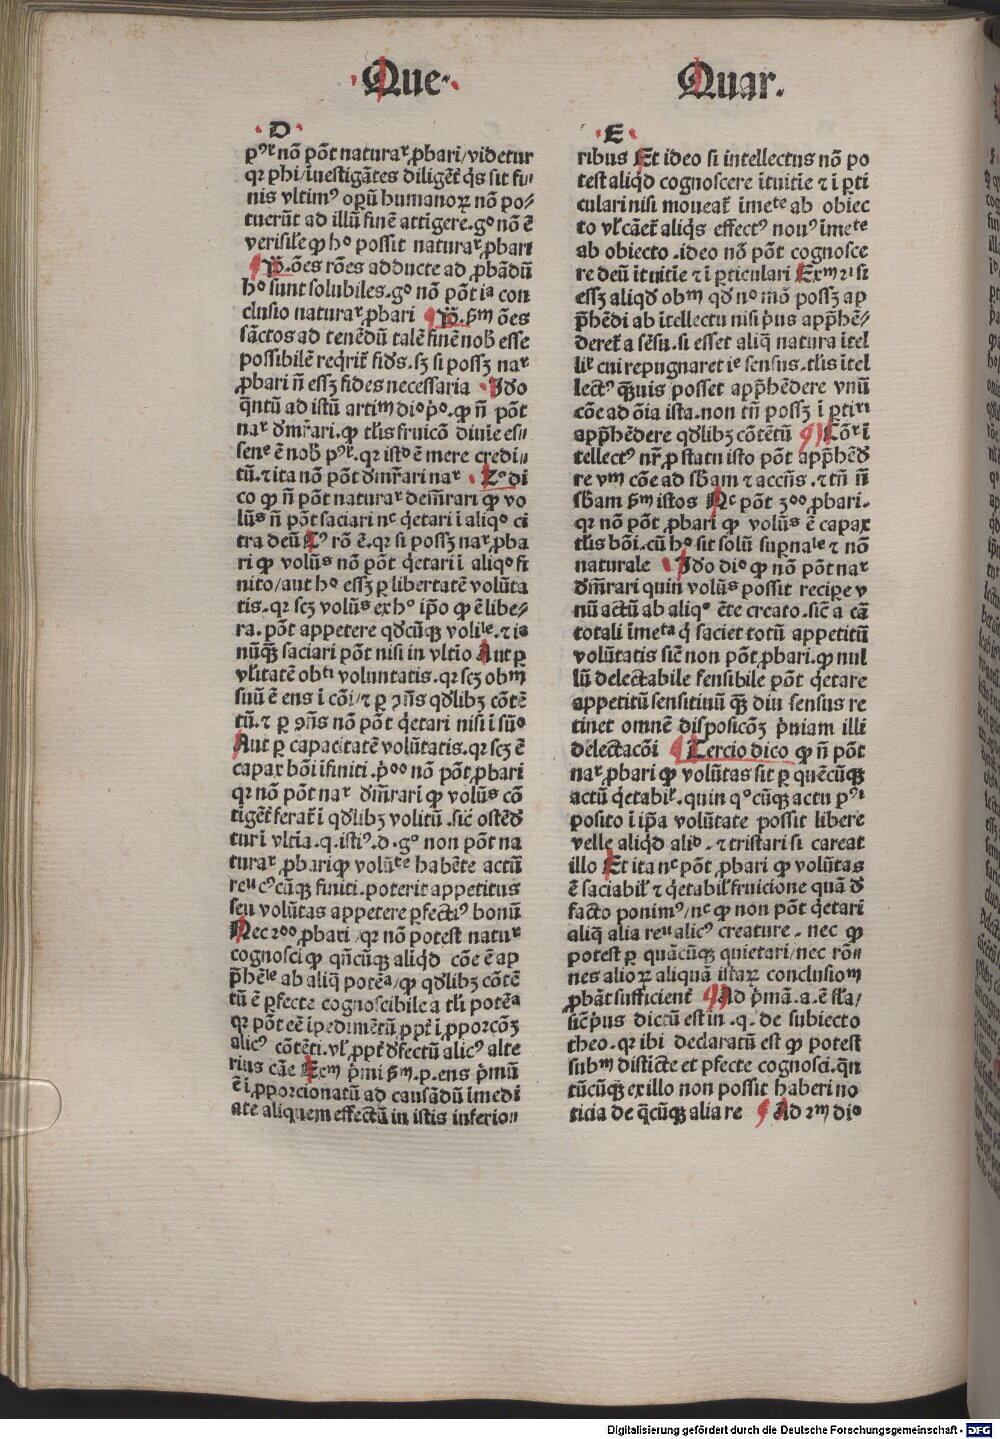 ·Que·
Quar.
·D·
pꝰr nō pōt naturar ꝓbari/videtur
qꝛ phi/īuestigātes diligēt̄ q̇s sit fi⸗
nis vltimꝰ oꝑū humanoꝝ nō po⸗
tuerūt ad illū finē attigere.go nō ē
verisiłe ꝙ ho possit naturar ꝓbari
ōes rōes adducte ad ꝓbādū
ho sunt solubiles.go nō pōt ia con
clusio naturar ꝓbari ōes
sāctos ad tenēdū talē finē nob̄ esse
possibilē reqͥrit̄ fiđs.sꝫ si possꝫ nar
ꝓbari n̄ essꝫ fides necessaria Ido
q̄ntū ad istū artim dio pͦo.ꝙ n̄ pōt
nar đmr̄ari.ꝙ tłis fruicō diuie es⸗
seꝫ e ē nob̄ pꝰr.qꝛ isto ē mere credi⸗
tū.⁊ ita nō pōt đmr̄ari nar ·Zo di
co ꝙ n̄ pōt naturar dem̄rari ꝙ vo
lūs n̄ pōt saciari nc q̇etari ī aliqo ci
tra deū Cꝰ rō ē.qꝛ si possꝫ nar ꝓba
ri ꝙ volūs nō pōt q̇etari ī aliqo fi
nito/aut ho essꝫ ꝑ libertatē volūta
tis.qꝛ scꝫ volūs ex ho ip̄o ꝙ ē libe⸗
ra.pōt appetere qđcūqꝫ volile.⁊ ia
nūqꝫ saciari pōt nisi in vltio Aut ꝑ
vłitatē obti voluntatis.qꝛ scꝫ obm
suū ē ens ī cōi/⁊ ꝑ ꝯn̄s qđlibꝫ cōtē
tū.⁊ ꝑ ꝯn̄s nō pōt q̇etari nisi ī sūo
Aut ꝑ capacitatē volūtatis.qꝛ scꝫ ē
capax bōi īfiniti.pͦoo nō pōt ꝓbari
qꝛ nō pōt nar đmr̄ari ꝙ volūs cō
tīgēt̄ ferat̄ ī qđlibꝫ volitū.sic̄ ostēđ
tur ī vltīa.q.istiꝰ.d.go non pōt na
turar ꝓbari ꝙ volūte habēte actū
reu cꝰcūqꝫ finiti.poterit appetitus
seu volūtas appetere ꝑfectiꝰ bonū
Nec 2oo ꝓbari qꝛ nō potest natur
cognosci ꝙ qn̄cūqꝫ aliqđ cōe ē ap
p̄hēle ab aliq̄ potēa/ꝙ qđlibꝫ cōtē
tū ē ꝑfecte cognoscibile a tłi potēa
qꝛ pōt eē īpedimētū ꝓpt̄ īꝓporcōꝫ
alicꝰ cōtēti.vł ꝓpt̄ đfectū alicꝰ alte
rius cāe Exm pͥmi ẜm.p.ens pͥmū
ē īꝓporcionatū ad causādū īmedi
ate aliquem effectū in istis inferio⸗
·E·
ribus Et ideo si intellectus nō po
test aliqđ cognoscere ītuitie ⁊ ī ꝑti
culari nisi moueat̄ īmete ab obiec
to vł cāet̄ aliqͥs effectꝰ nouꝰ īmete
ab obiecto.ideo nō pōt cognosce
re deū ītuitie ⁊ ī ꝑticulari Exm 2i si
essꝫ aliqđ obm qđ no mō possꝫ ap
p̄hēdi ab ītellectu nisi pͥus app̄hē⸗
deret̄ a sēsu.si esset aliq̄ natura ītel
lił cui repugnaret ie sensus.tłis ītel
lectꝰ qꝫuis posset app̄hēdere vnū
cōe ad ōia ista.non tn̄ possꝫ ī ꝑtiri
app̄hēdere qđlibꝫ cōtētū Cōr ī
tellectꝰ nr̄ ꝓ statu isto pōt app̄hēđ
re vm cōe ad sb̄am ⁊ accn̄s.⁊ tn̄ n̄
sb̄am ẜm istos Nc pōt 3oo ꝓbari.
qꝛ nō pōt ꝓbari ꝙ volūs ē capax
tłis bōi.cū ho sit solū suꝑnale ⁊ nō
naturale ·Ido dio ꝙ nō pōt nar
đmr̄ari quin volūs possit recipe v
nū actū ab aliqo ēte creato.sic̄ a cā
totali īmeta q̇ saciet totū appetitū
volūtatis sic̄ non pōt ꝓbari.ꝙ nul
lū delectabile sensibile pōt q̇etare
appetitū sensitiuū qꝫ diu sensus re
tinet omnē disposicōꝫ pͥuiam illi
delectacōi Tercio dico ꝙ n̄ pōt
nar ꝓbari ꝙ volūtas sit ꝑ quēcūqꝫ
actū q̇etabił.quin qocūqꝫ actu pꝰi
posito ī ip̄a volūtate possit libere
velle aliqđ alio.⁊ tristari si careat
illo Et ita nc pōt ꝓbari ꝙ volūtas
ē saciabił ⁊ q̇etabił fruicione quā đ
facto ponimꝰ/nc ꝙ non pōt q̇etari
aliq̄ alia reu alicꝰ creature.nec ꝙ
potest ꝑ quācūqꝫ quietari/nec rō⸗
nes alioꝝ aliquā istaꝝ conclusiom
ꝓbāt sufficient̄ Ad pͥmā.a.ē sła/
sic̄ pͥus dictū est in.q.de subiecto
theo.qꝛ ibi declaratū est ꝙ potest
subm disticte et ꝑfecte cognosci.qn̄
tūcūqꝫ ex illo non possit haberi no
ticia de q̄cūqꝫ alia re Ad 2m dio
Digitalisierung gefördert durch die Deutsche Forschungsgemeinschaft - DFG